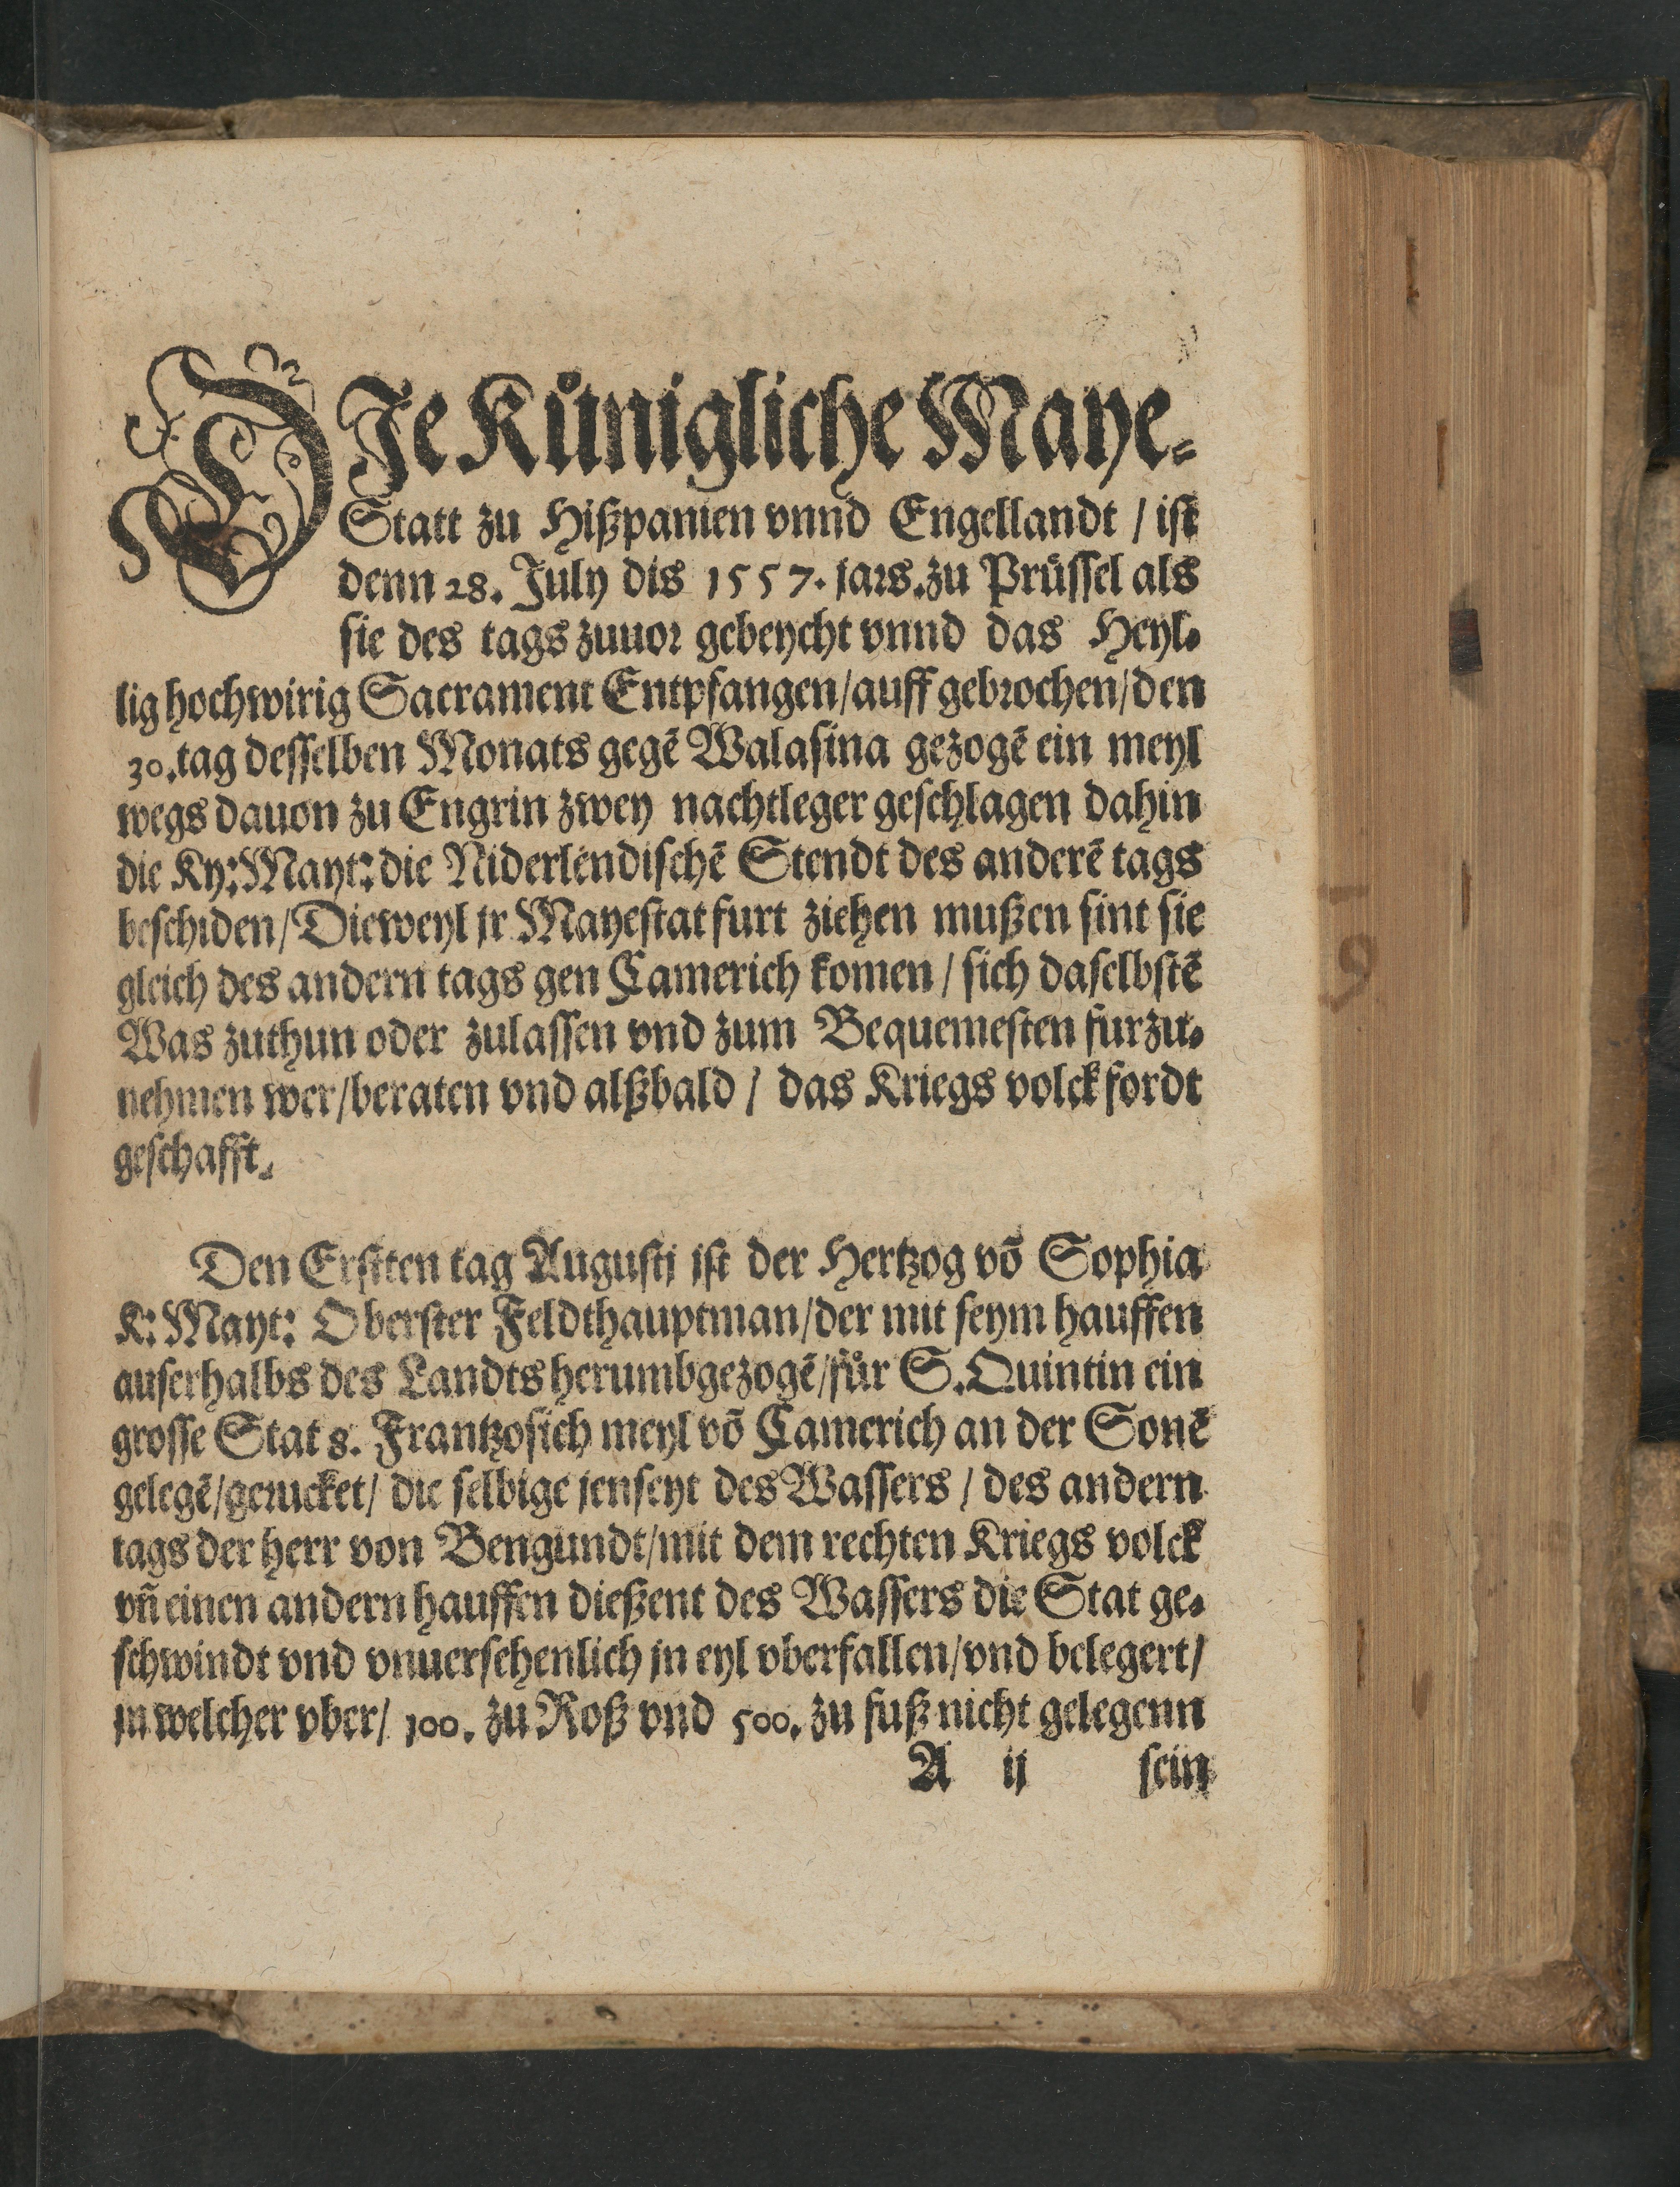 DJe Kůnigliche Maye-
Statt zu Hißpanien vnnd Engellandt / ist
denn 28. July dis 1557. jars. zu Prüssel als
sie des tags zuuor gebeycht vnnd das Heyl-
lig hochwirig Sacrament Entpfangen/auff gebrochen/den
30. tag desselben Monats gegē Walasina gezogē ein meyl
wegs dauon zu Engrin zwey nachtleger geschlagen dahin
die Ky: Mayt: die Niderlendischē Stendt des anderē tags
beschiden/Dieweyl jr Mayestat furt ziehen mußen sint sie
gleich des andern tags gen Camerich komen / sich daselbstē
Was zuthun oder zulassen vnd zum Bequemesten furzu-
nehmen wer/beraten vnd alßbald / das Kriegs volck fordt
geschafft.
Den Ersten tag Augustj ist der Hertzog vō Sophia
K: Mayt: Oberster Feldthauptman/der mit seym hauffen
auserhalbs des Landts herumbgezogē/für S. Quintin ein
grosse Stat 8. Frantzosich meyl vō Camerich an der Sonē
gelegē/gerucket/ die selbige jenseyt des Wassers / des andern
tags der herr von Bengundt/mit dem rechten Kriegs volck
vñ einen andern hauffen dießent des Wassers die Stat ge-
schwindt vnd vnuersehenlich jn eyl vberfallen/vnd belegert/
jn welcher vber/ 100. zu Roß vnd 500. zu fuß nicht gelegenn
A ij sein
19